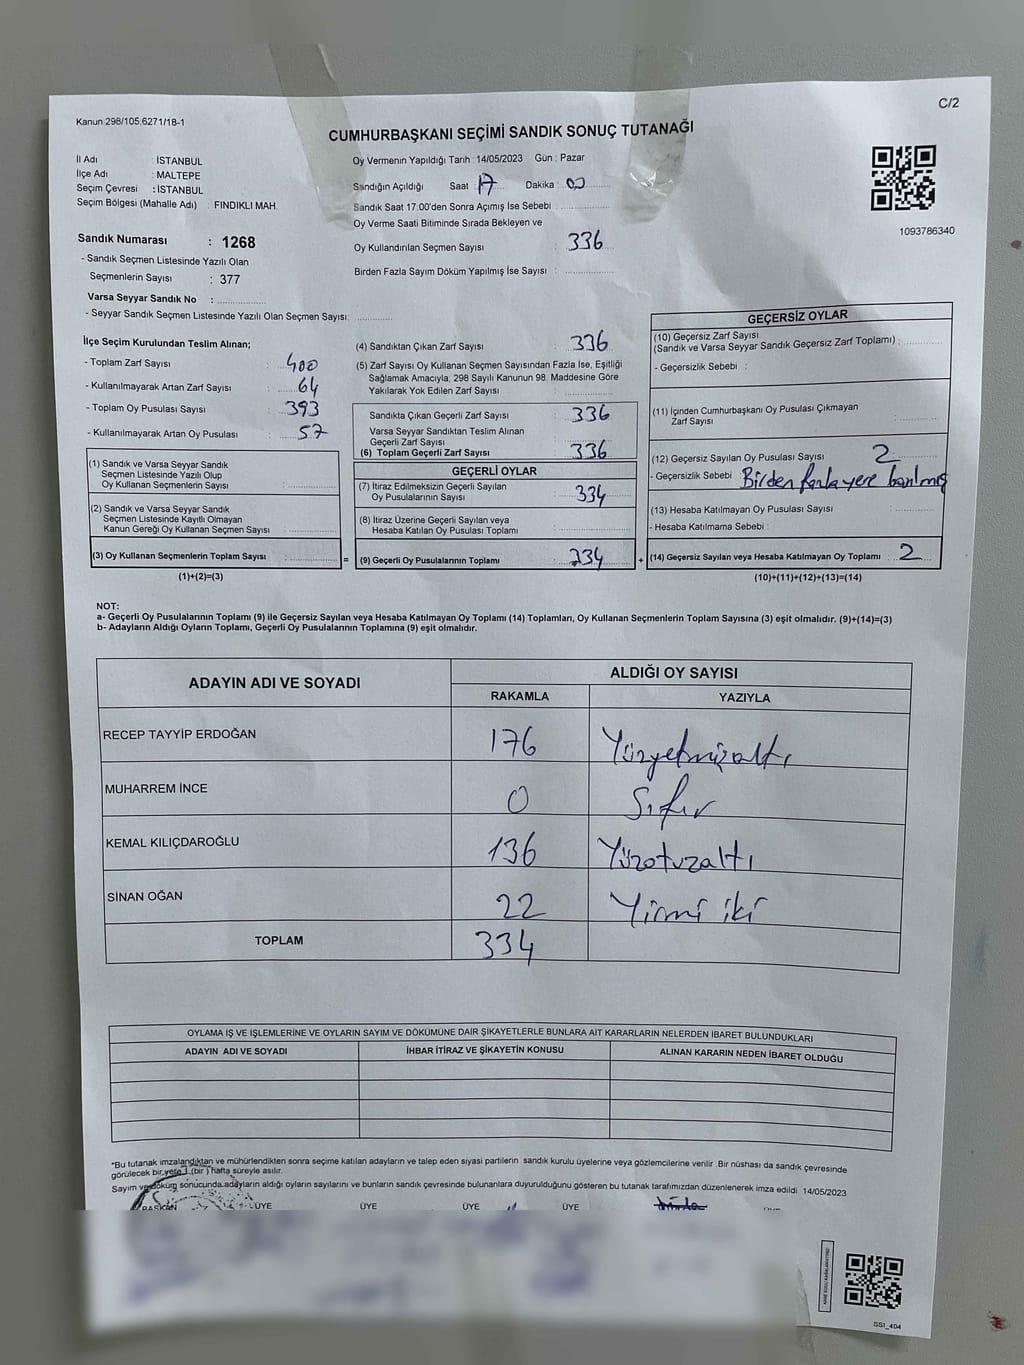 C/2
Kanun 298/105,6271/18-1
CUMHURBAŞKANI SEÇİMİ SANDIK SONUÇ TUTANAĞI
İl Adı : İSTANBUL
İlçe Adı : MALTEPE
Seçim Çevresi : İSTANBUL
Seçim Bölgesi (Mahalle Adı) : FINDIKLI MAH.
Sandık Numarası : 1268
- Sandık Seçmen Listesinde Yazılı Olan
Seçmenlerin Sayısı : 377
Varsa Seyyar Sandık No :
- Seyyar Sandık Seçmen Listesinde Yazılı Olan Seçmen Sayısı:
Oy Vermenin Yapıldığı Tarih : 14/05/2023 Gün : Pazar
Sandığın Açıldığı Saat : 17 Dakika : 00
Sandık Saat 17:00'den Sonra Açımış İse Sebebi :
Oy Verme Saati Bitiminde Sırada Bekleyen ve
Oy Kullandırılan Seçmen Sayısı : 336
Birden Fazla Sayım Döküm Yapılmış İse Sayısı :
1093786340
İlçe Seçim Kurulundan Teslim Alınan;
- Toplam Zarf Sayısı : 400
- Kullanılmayarak Artan Zarf Sayısı : 64
- Toplam Oy Pusulası Sayısı : 393
- Kullanılmayarak Artan Oy Pusulası : 57
(1) Sandık ve Varsa Seyyar Sandık
Seçmen Listesinde Yazılı Olup
Oy Kullanan Seçmenlerin Sayısı :
(2) Sandık ve Varsa Seyyar Sandık
Seçmen Listesinde Kayıtlı Olmayan
Kanun Gereği Oy Kullanan Seçmen Sayısı :
(3) Oy Kullanan Seçmenlerin Toplam Sayısı : =
(1)+(2)=(3)
(4) Sandıktan Çıkan Zarf Sayısı : 336
(5) Zarf Sayısı Oy Kullanan Seçmen Sayısından Fazla İse, Eşitliği
Sağlamak Amacıyla, 298 Sayılı Kanunun 98. Maddesine Göre
Yakılarak Yok Edilen Zarf Sayısı :
Sandıkta Çıkan Geçerli Zarf Sayısı : 336
Varsa Seyyar Sandıktan Teslim Alınan
Geçerli Zarf Sayısı :
(6) Toplam Geçerli Zarf Sayısı : 336
GEÇERLİ OYLAR
(7) İtiraz Edilmeksizin Geçerli Sayılan
Oy Pusulalarının Sayısı : 334
(8) İtiraz Üzerine Geçerli Sayılan veya
Hesaba Katılan Oy Pusulası Toplamı :
(9) Geçerli Oy Pusulalarının Toplamı : 334 +
GEÇERSİZ OYLAR
(10) Geçersiz Zarf Sayısı
(Sandık ve Varsa Seyyar Sandık Geçersiz Zarf Toplamı) :
- Geçersizlik Sebebi :
(11) İçinden Cumhurbaşkanı Oy Pusulası Çıkmayan
Zarf Sayısı :
(12) Geçersiz Sayılan Oy Pusulası Sayısı : 2
- Geçersizlik Sebebi : Birden fazla yere basılmış
(13) Hesaba Katılmayan Oy Pusulası Sayısı :
- Hesaba Katılmama Sebebi :
(14) Geçersiz Sayılan veya Hesaba Katılmayan Oy Toplamı : 2
(10)+(11)+(12)+(13)=(14)
NOT:
a- Geçerli Oy Pusulalarının Toplamı (9) ile Geçersiz Sayılan veya Hesaba Katılmayan Oy Toplamı (14) Toplamları, Oy Kullanan Seçmenlerin Toplam Sayısına (3) eşit olmalıdır. (9)+(14)=(3)
b- Adayların Aldığı Oyların Toplamı, Geçerli Oy Pusulalarının Toplamına (9) eşit olmalıdır.
ADAYIN ADI VE SOYADI ALDIĞI OY SAYISI
RAKAMLA YAZIYLA
RECEP TAYYİP ERDOĞAN 176 Yüzyetmişaltı
MUHARREM İNCE 0 Sıfır
KEMAL KILIÇDAROĞLU 136 Yüzotuzaltı
SİNAN OĞAN 22 Yirmi iki
TOPLAM 334
OYLAMA İŞ VE İŞLEMLERİNE VE OYLARIN SAYIM VE DÖKÜMÜNE DAİR ŞİKAYETLERLE BUNLARA AİT KARARLARIN NELERDEN İBARET BULUNDUKLARI
ADAYIN ADI VE SOYADI İHBAR İTİRAZ VE ŞİKAYETİN KONUSU ALINAN KARARIN NEDEN İBARET OLDUĞU
*Bu tutanak imzalandıktan ve mühürlendikten sonra seçime katılan adayların ve talep eden siyasi partilerin sandık kurulu üyelerine veya gözlemcilerine verilir .Bir nüshası da sandık çevresinde
görülecek bir yere 1 (bir ) hafta süreyle asılır.
Sayım ve döküm sonucunda adayların aldığı oyların sayılarını ve bunların sandık çevresinde bulunanlara duyurulduğunu gösteren bu tutanak tarafımızdan düzenlenerek imza edildi 14/05/2023
BAŞKAN ÜYE ÜYE ÜYE ÜYE
SS1_404